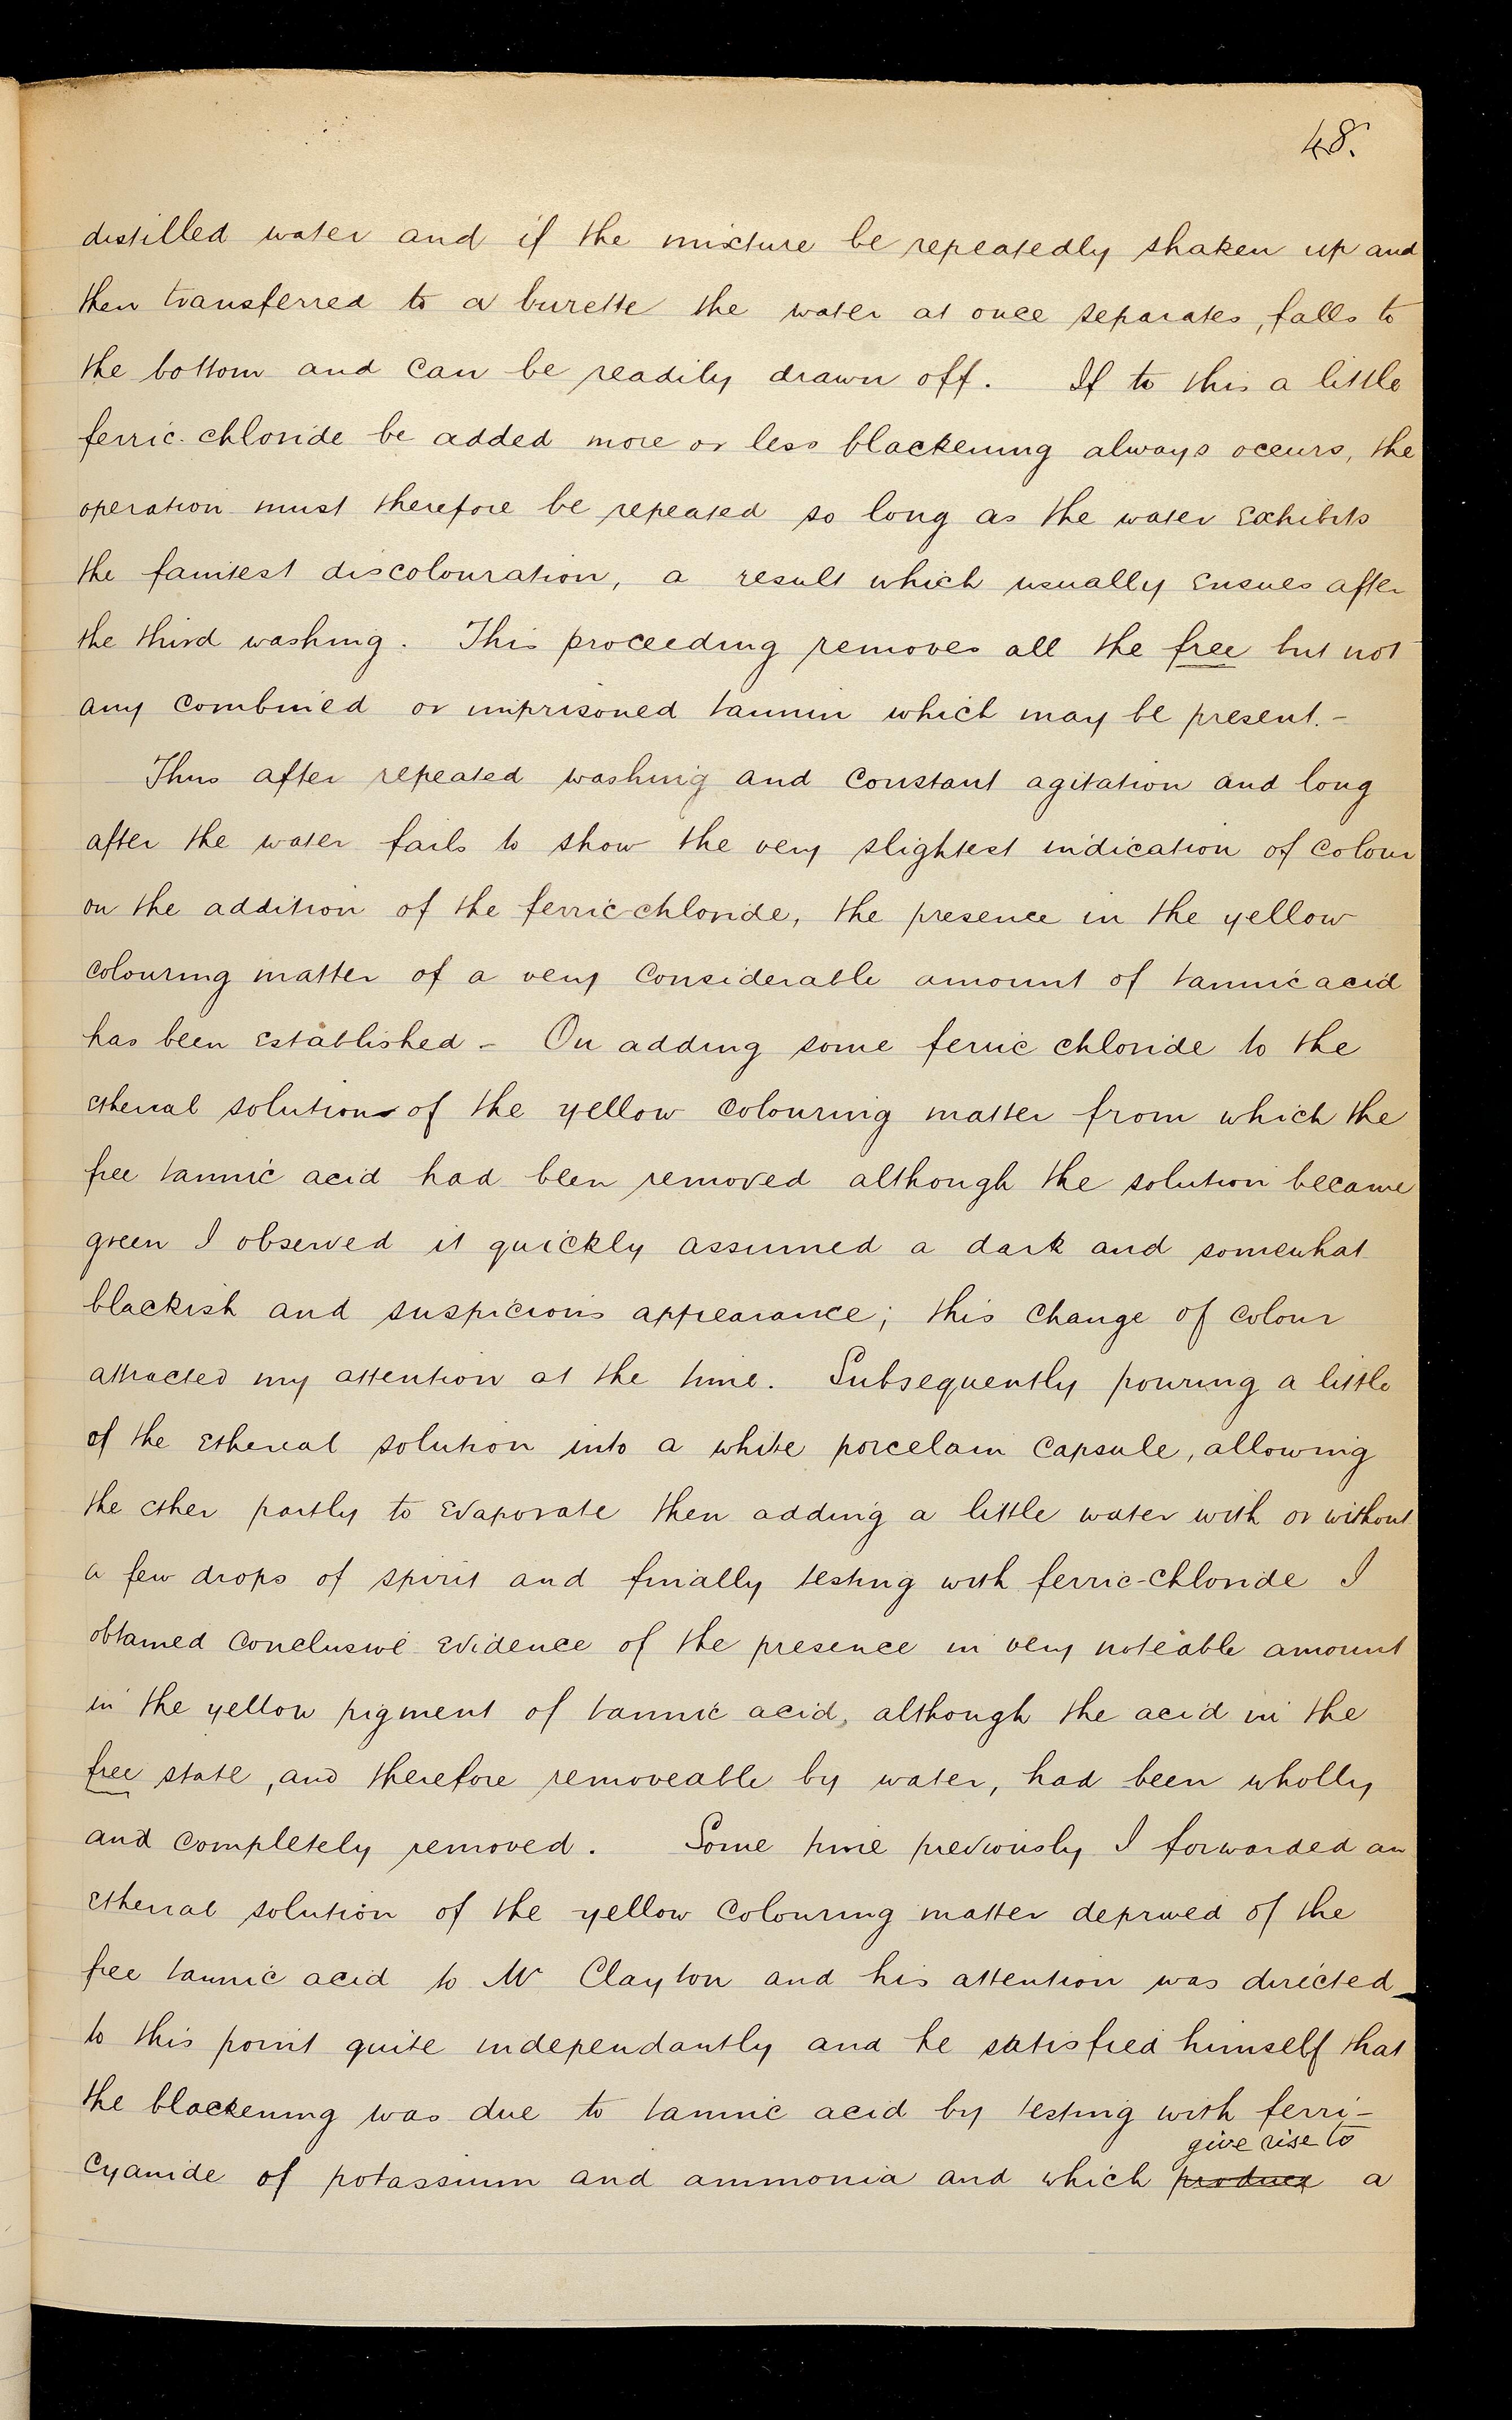 48.
distilled water and if the mixture be repeatedly shaken up and
then transferred to a burette the water at once separates, falls to
the bottom and can be readily drawn off. If to this a little
ferric-chloride be added more or less blackening always occurs, the
operation must therefore be repeated so long as the water exhibits
the faintest discolouration, a result which usually ensues after
the third washing. This proceeding removes all the free but not
any combined or imprisoned tannin which may be present. -
Thus after repeated washing and constant agitation and long
after the water fails to show the very slightest indication of colour
on the addition of the ferric-chloride, the presence in the yellow
colouring matter of a very considerable amount of tannic acid
has been established - On adding some ferric chloride to the
etherial solution of the yellow colouring matter from which the
free tannic acid had been removed although the solution became
green I observed it quickly assumed a dark and somewhat
blackish and suspicious appearance; this change of colour
attracted my attention at the time. Subsequently pouring a little
of the etherial solution into a white porcelain capsule, allowing
the ether partly to evaporate then adding a little water with or without
a few drops of spirit and finally testing with ferric-chloride I
obtained conclusive evidence of the presence in very noteable amount
in the yellow pigment of tannic acid, although the acid in the
free state, and therefore removeable by water, had been wholly
and completely removed. Some time previously I forwarded an
etherial solution of the yellow colouring matter deprived of the
free tannic acid to Mr Clayton and his attention was directed
to this point quite independantly and he satisfied himself that
the blackening was due to tannic acid by testing with ferri-
give rise to
cyanide of potassium and ammonia and which produced a